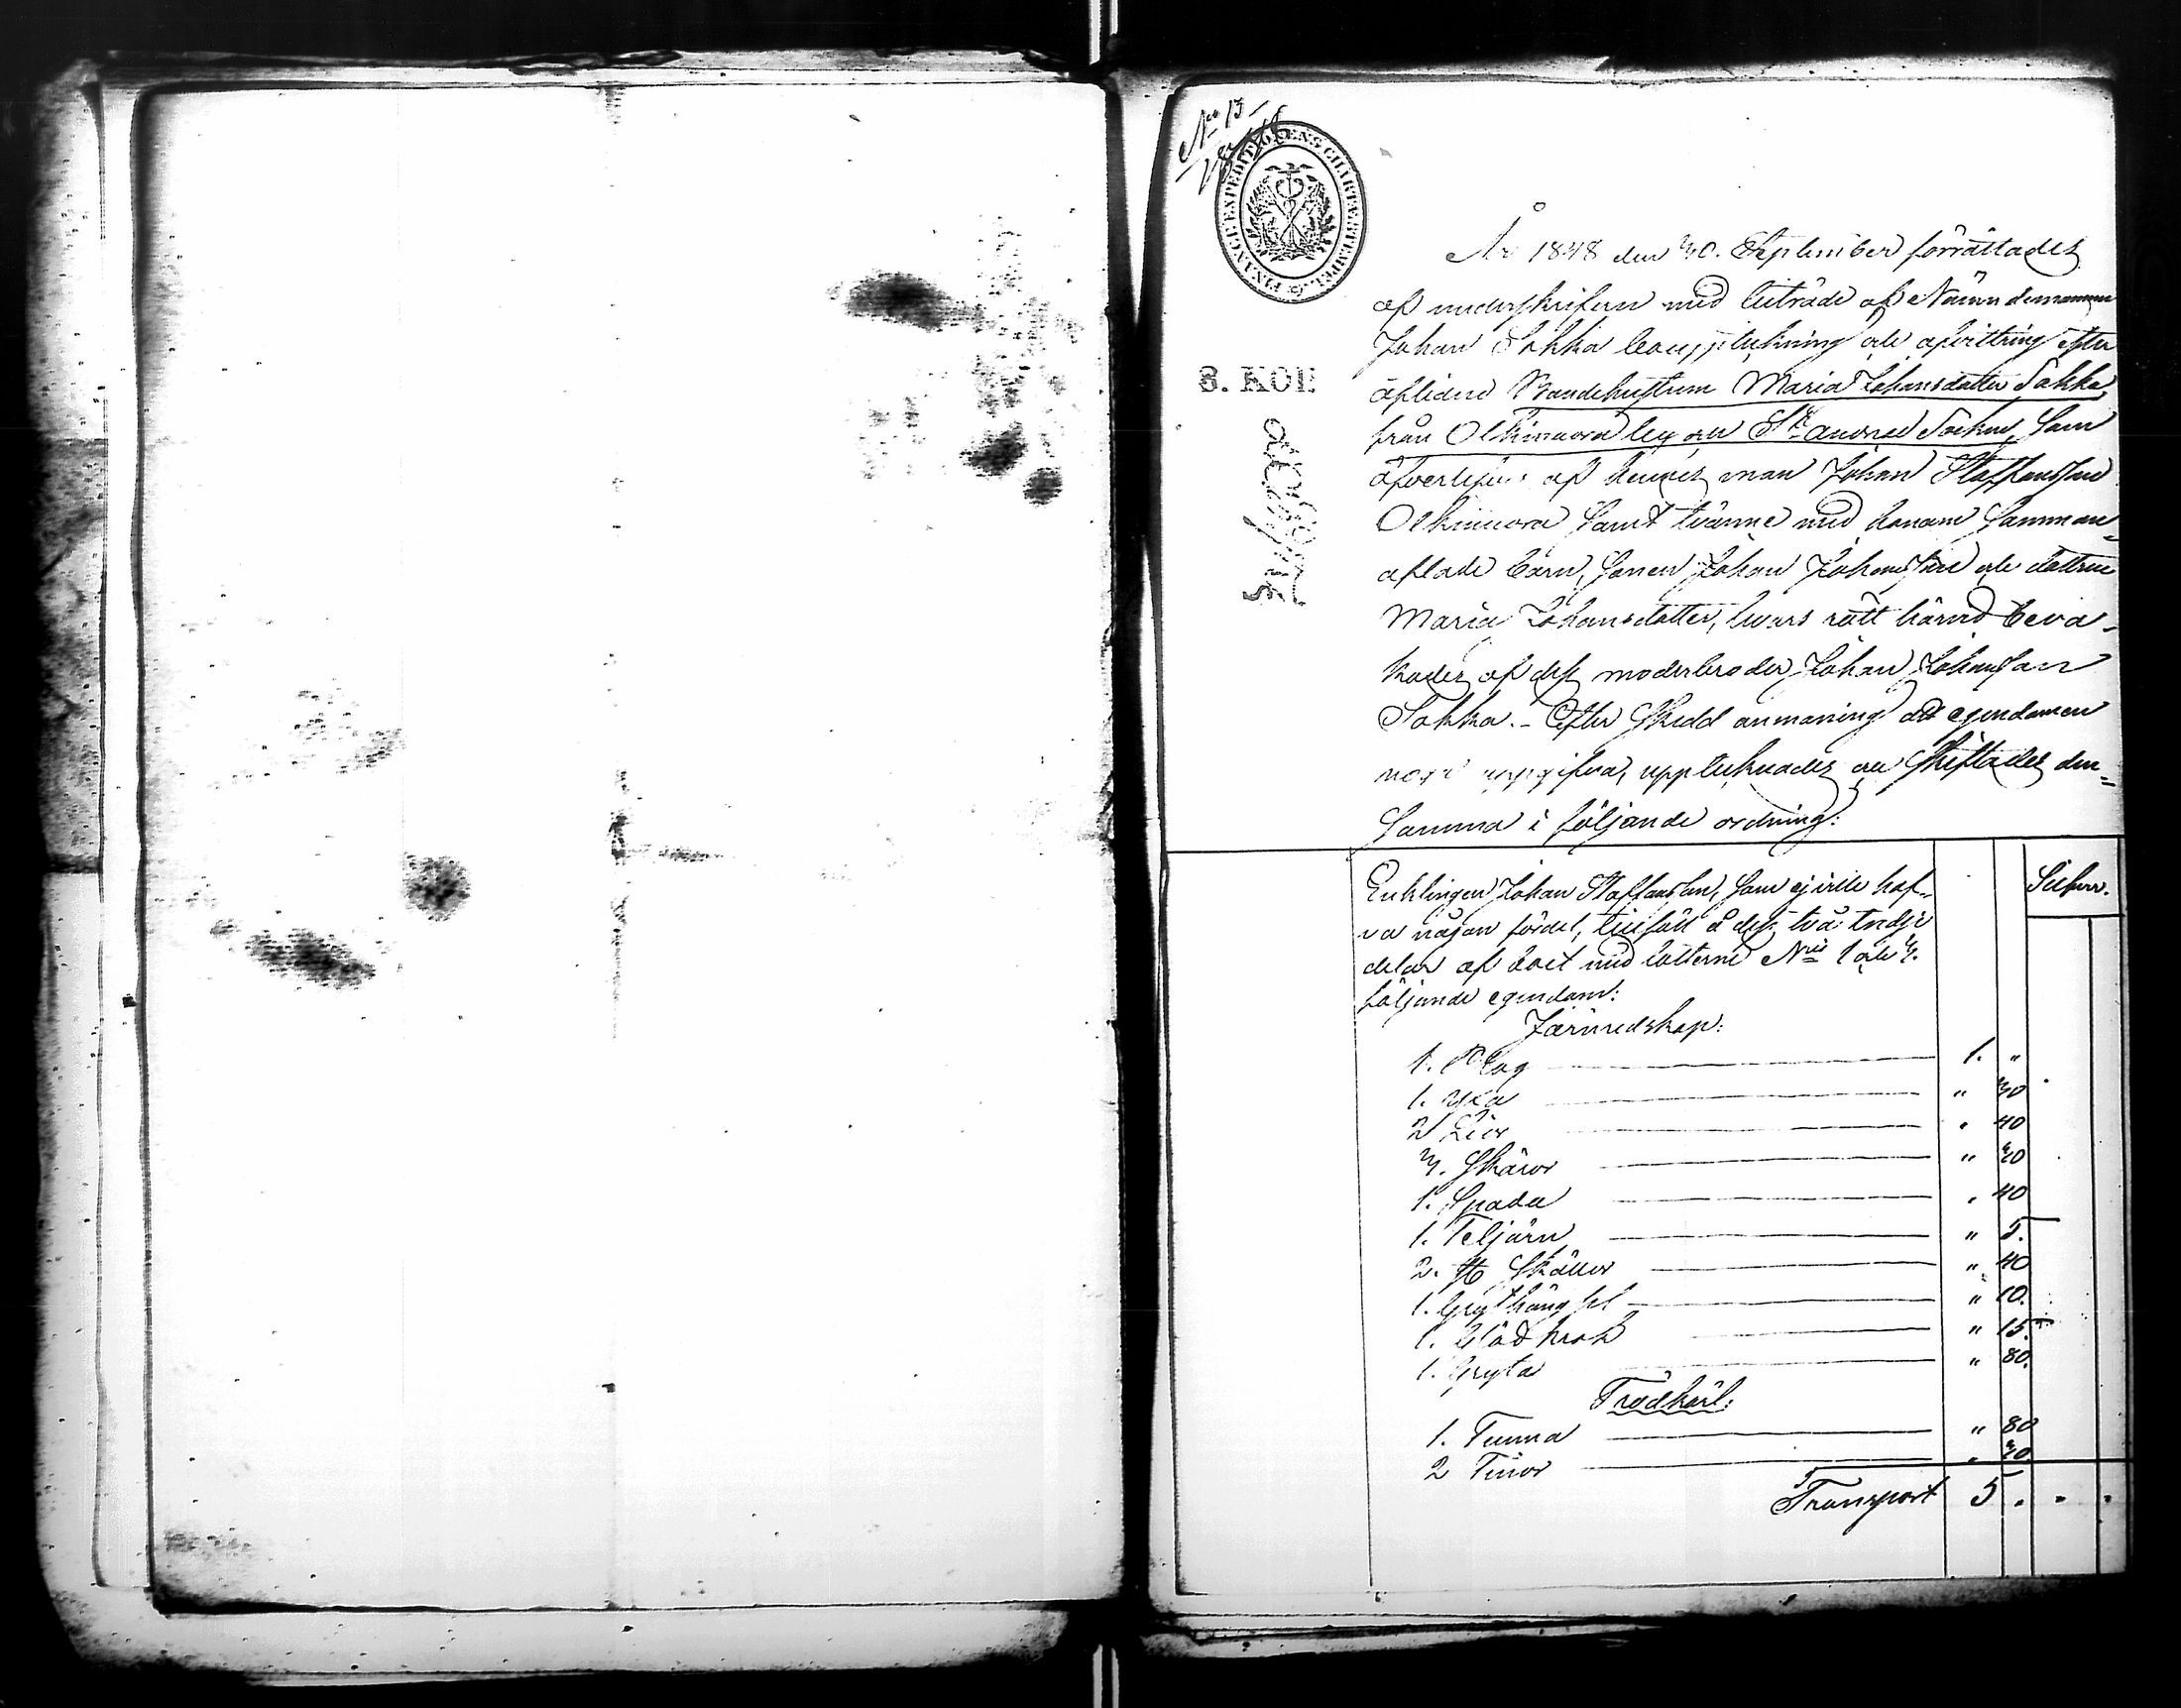 No 13
1848
FINANCE EXPEDITIONENS CHARTÆ STEMPEL
8. KOP.
År 1848 den 30. September förrättades
af underskrifven med biträde af Nämndemannen
Johan Sokka bouppteckning och afvittring efter
aflidna Bondehustrun Maria Johansdotter Sokka
från Olkinuora by och S:t Andreæ Socken, som
öfverlefves af hennes man Johan Staffansson
Olkinuora samt tvänne med honom samman-
aflade barn, sonen Johan Johansson och dottren
Maria Johansdotter, hvars rätt härvid beva-
kades af dess moderbroder Johan Johansson
Sokka. - Efter skedd anmaning att egendomen
uppgifva, upptecknades och skiftades den-
samma i följande ordning:
Silfver.
Enklingen Johan Staffansson, som ej ville haf-
va någon fördel, tillföll å dess två tredje
delar af boet med lotterne N:ris 1 och 3.
följande egendom:
Järnredskap:
1. Plog 1. "
1. Yxa " 30
2 Liar " 40
3. Skäror " 30
1. Spada " 40
1. Teljärn " 5.
2. st Skällor " 40
1. Grythängsel " 10.
1. Glödkrok " 15.
1. Gryta " 80.
Trädkäril:
1. Tunna " 80
2 Tinor " 30
Transport 5 . . .